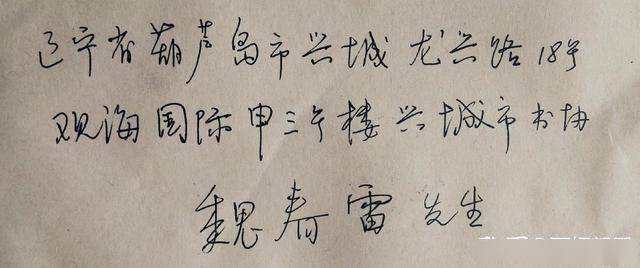 辽宁省葫芦岛市兴城龙兴路18号
观海国际申三号楼兴城市书协
魏春雷先生